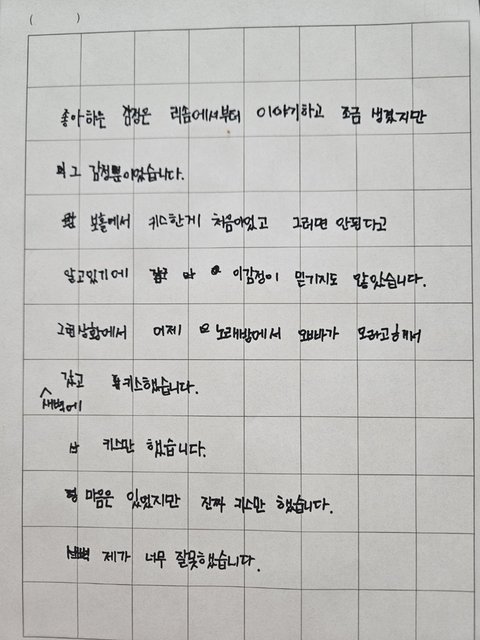 ( )
좋아하는 감정은 리솜에서부터 이야기하고 조금 생겼지만
그 감정뿐이었습니다.
보홀에서 키스한게 처음이었고 그러면 안된다고
알고있기에 이감정이 믿기지도 않았습니다.
그런상황에서 어제 노래방에서 오빠가 오라고해서
갔고 키스했습니다.
새벽에
키스만 했습니다.
마음은 있었지만 진짜 키스만 했습니다.
제가 너무 잘못했습니다.